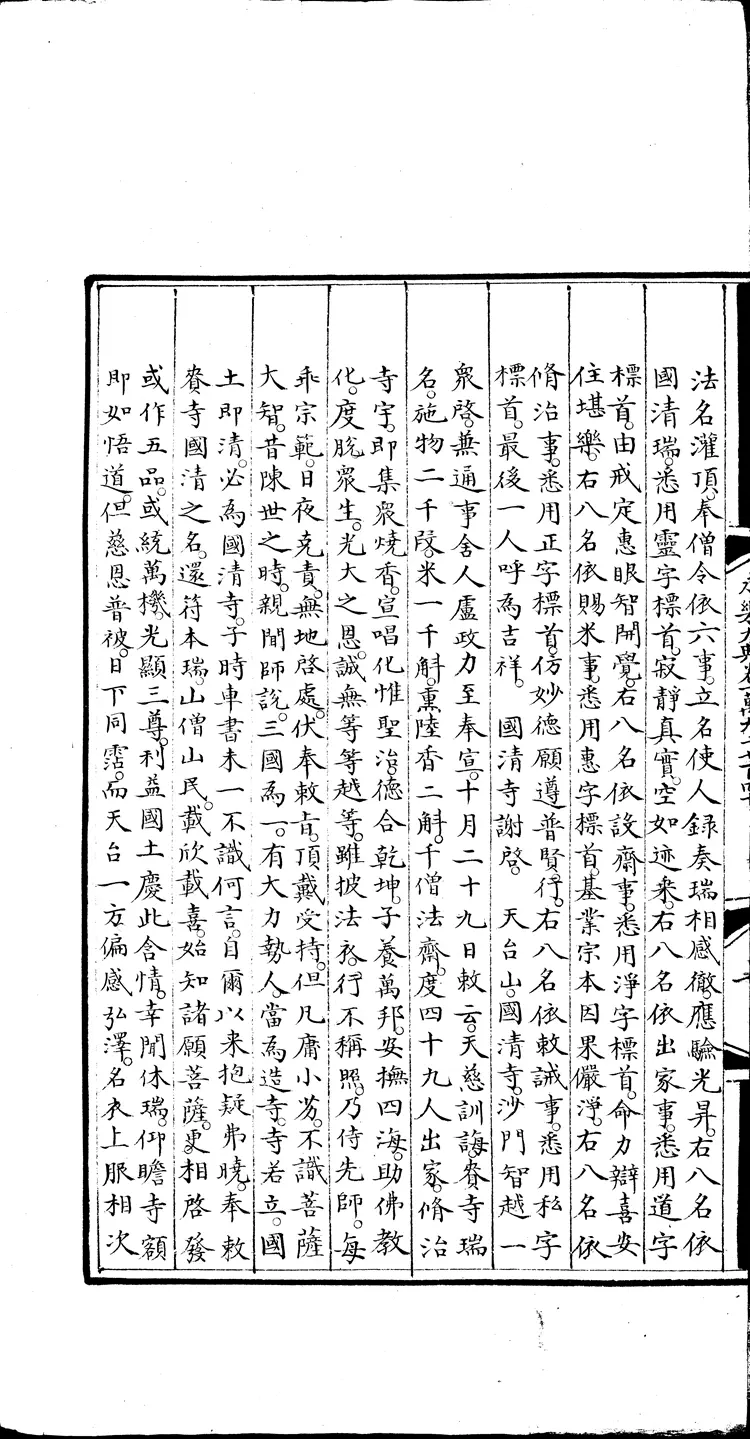 法名灌頂。奉僧令依六事。立名使人録奏瑞相感徹。應驗光昇。右八名依
國清瑞。悉用靈字標首。寂靜真實。空如迹乘。右八名依出家事。悉用道字
標首。由戒定惠眼智開覺。右八名依設齋事。悉用淨字標首。命力辯喜安
住堪樂。右八名依賜米事。悉用惠字標首。基業宗本因果儼淨。右八名依
脩治事。悉用正字標首。仿妙德願遵普賢行。右八名依敕誡事。悉用私字
標首。最後一人呼為吉祥。 國清寺謝啓。 天台山。國清寺。沙門智越一
衆啓。兼通事舍人盧政力至奉宣。十月二十九日敕云。天慈訓誨。賚寺瑞
名。施物二千段。米一千斛。熏陸香二斛。千僧法齋。度四十九人出家。脩治
寺宇。即集衆燒香。宣唱化惟聖治。德合乾坤。子養萬邦。安撫四海。助佛教
化。度脫衆生。光大之恩。誠無等等越等。雖披法衣。行不稱照。乃侍先師。每
乖宗範。日夜克責。無地啓處。伏奉敕旨。頂戴受持。但凡庸小劣。不識菩薩
大智。昔陳世之時。親聞師說。三國為一。有大力勢人。當為造寺。寺若立。國
土即清。必為國清寺。于時車書未一。不識何言。自爾以来抱疑弗曉。奉敕
賚寺國清之名。還符本瑞。山僧山民。載欣載喜。始知諸願菩薩。更相啓發
或作五品。或統萬機。光顯三尊。利益國土。慶此含情。幸聞休瑞。仰瞻寺額
即如悟道。但慈恩普被。日下同霑。而天台一方偏感弘澤。名衣上服相次